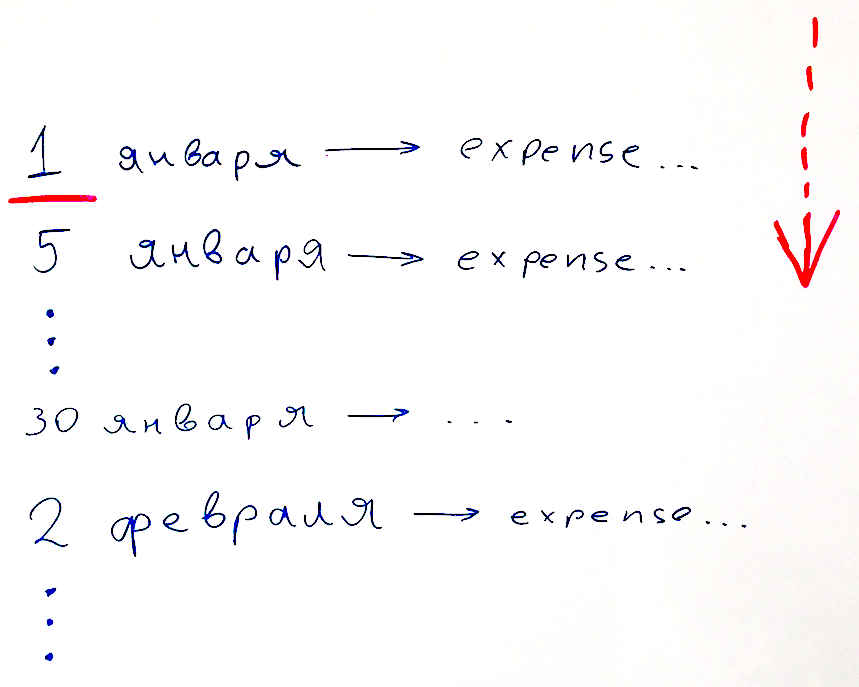 1 января → expense...
5 января → expense...
⋮
30 января → ...
2 февраля → expense...
⋮